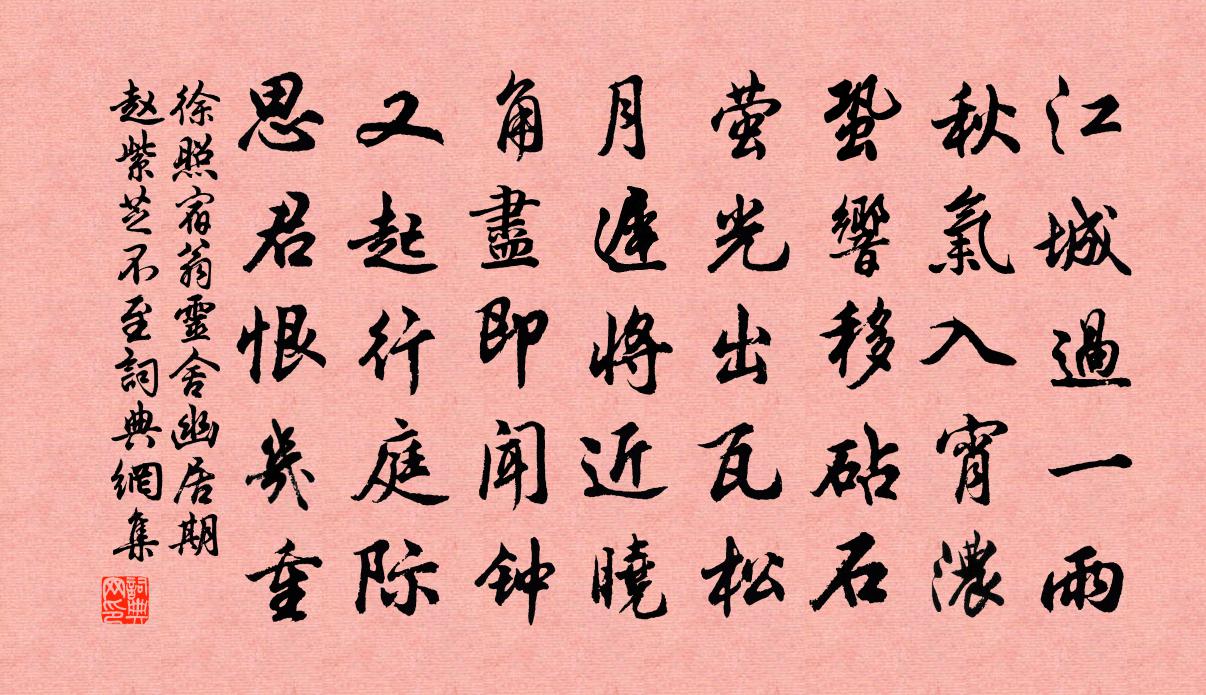 江城過一雨
秋氣入宵濃
蛩響移砧石
萤光出瓦松
月遅将近曉
角盡即闻钟
又起行庭际
思君恨幾重
徐照宿翁靈舍幽居期
赵紫芝不至詞典網集
詞典
网印